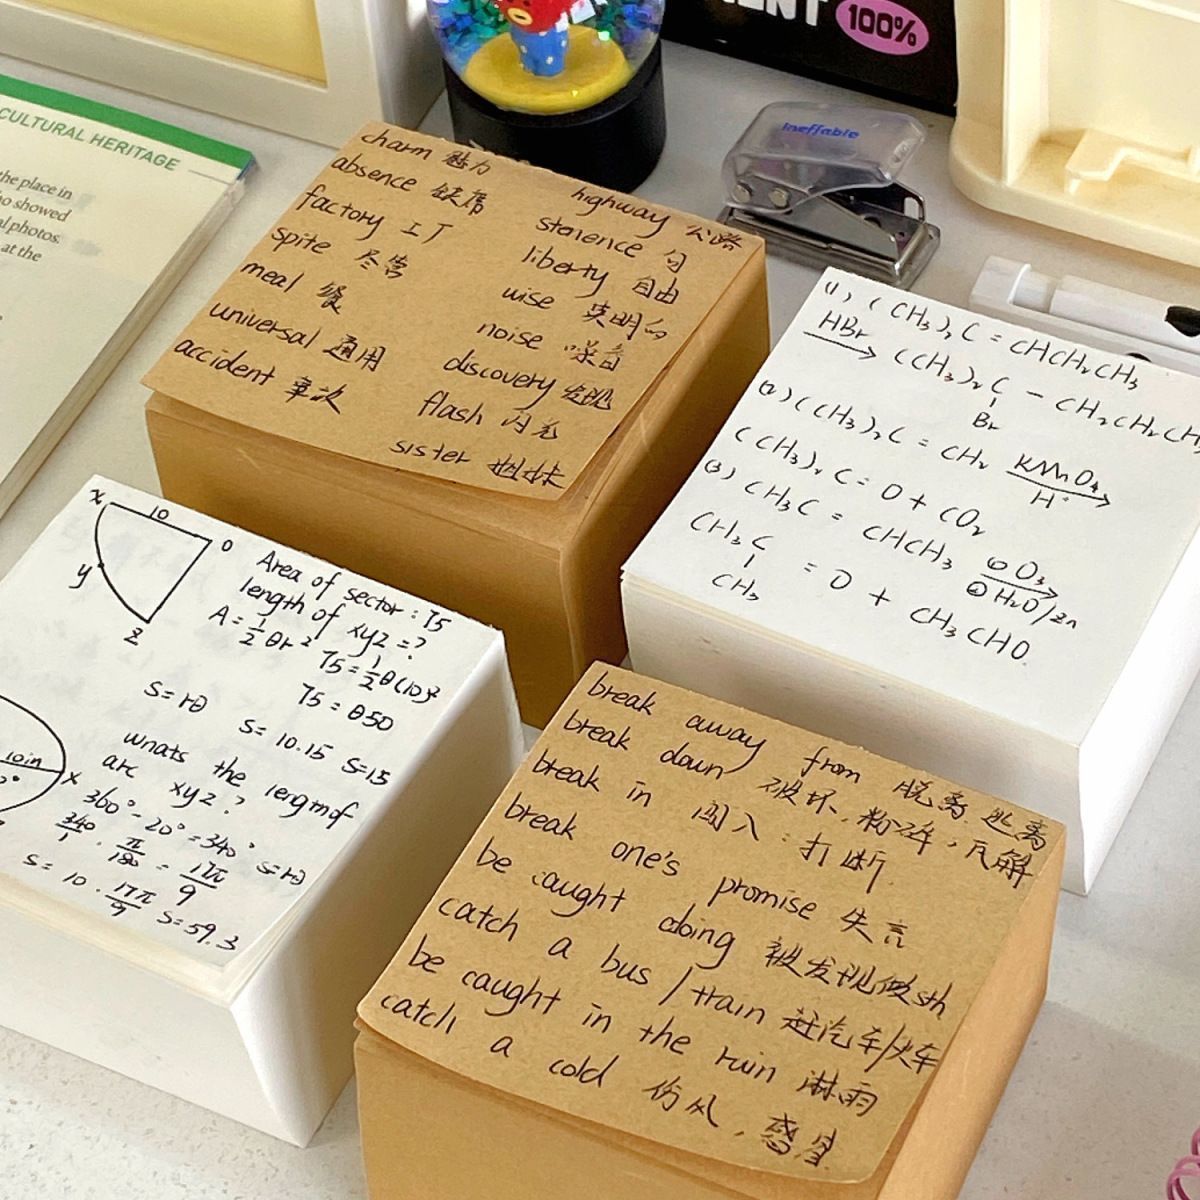 100%
CULTURAL HERITAGE
the place in
showed
photos.
at the
ineffable
charm 魅力
absence 缺席
factory 工厂
spite 尽管
meal 餐
universal 通用
accident 事故
highway 公路
stenence 句
liberty 自由
wise 英明的
noise 噪音
discovery 发现
flash 闪光
sister 姐妹
(1) (CH₃)₂C = CHCH₂CH₃
HBr
(CH₃)₂C - CH₂CH₂CH
Br
(2) (CH₃)₂C = CH₂ KMnO₄
H⁺
(CH₃)₂C = O + CO₂
(3) CH₃C = CHCH₃ ① O₃
② H₂O/Zn
CH₃C = O + CH₃CHO
CH₃
x 10 O
y
z
Area of sector: 75
length of xyz = ?
A = 1/2 θr²
75 = 1/2 θ(10)²
75 = θ50
s = rθ s = 10·1.5 s = 15
whats the length of
arc xyz?
10in
x
360° - 20° = 340° s = rθ
340/1 · π/180 = 17π/9
s = 10 · 17π/9 s = 59.3
break away from 脱离,逃离
break down 破坏,粉碎,瓦解
break in 闯入;打断
break one's promise 失言
be caught doing 被发现做sth
catch a bus / train 赶汽车/火车
be caught in the rain 淋雨
catch a cold 伤风,感冒